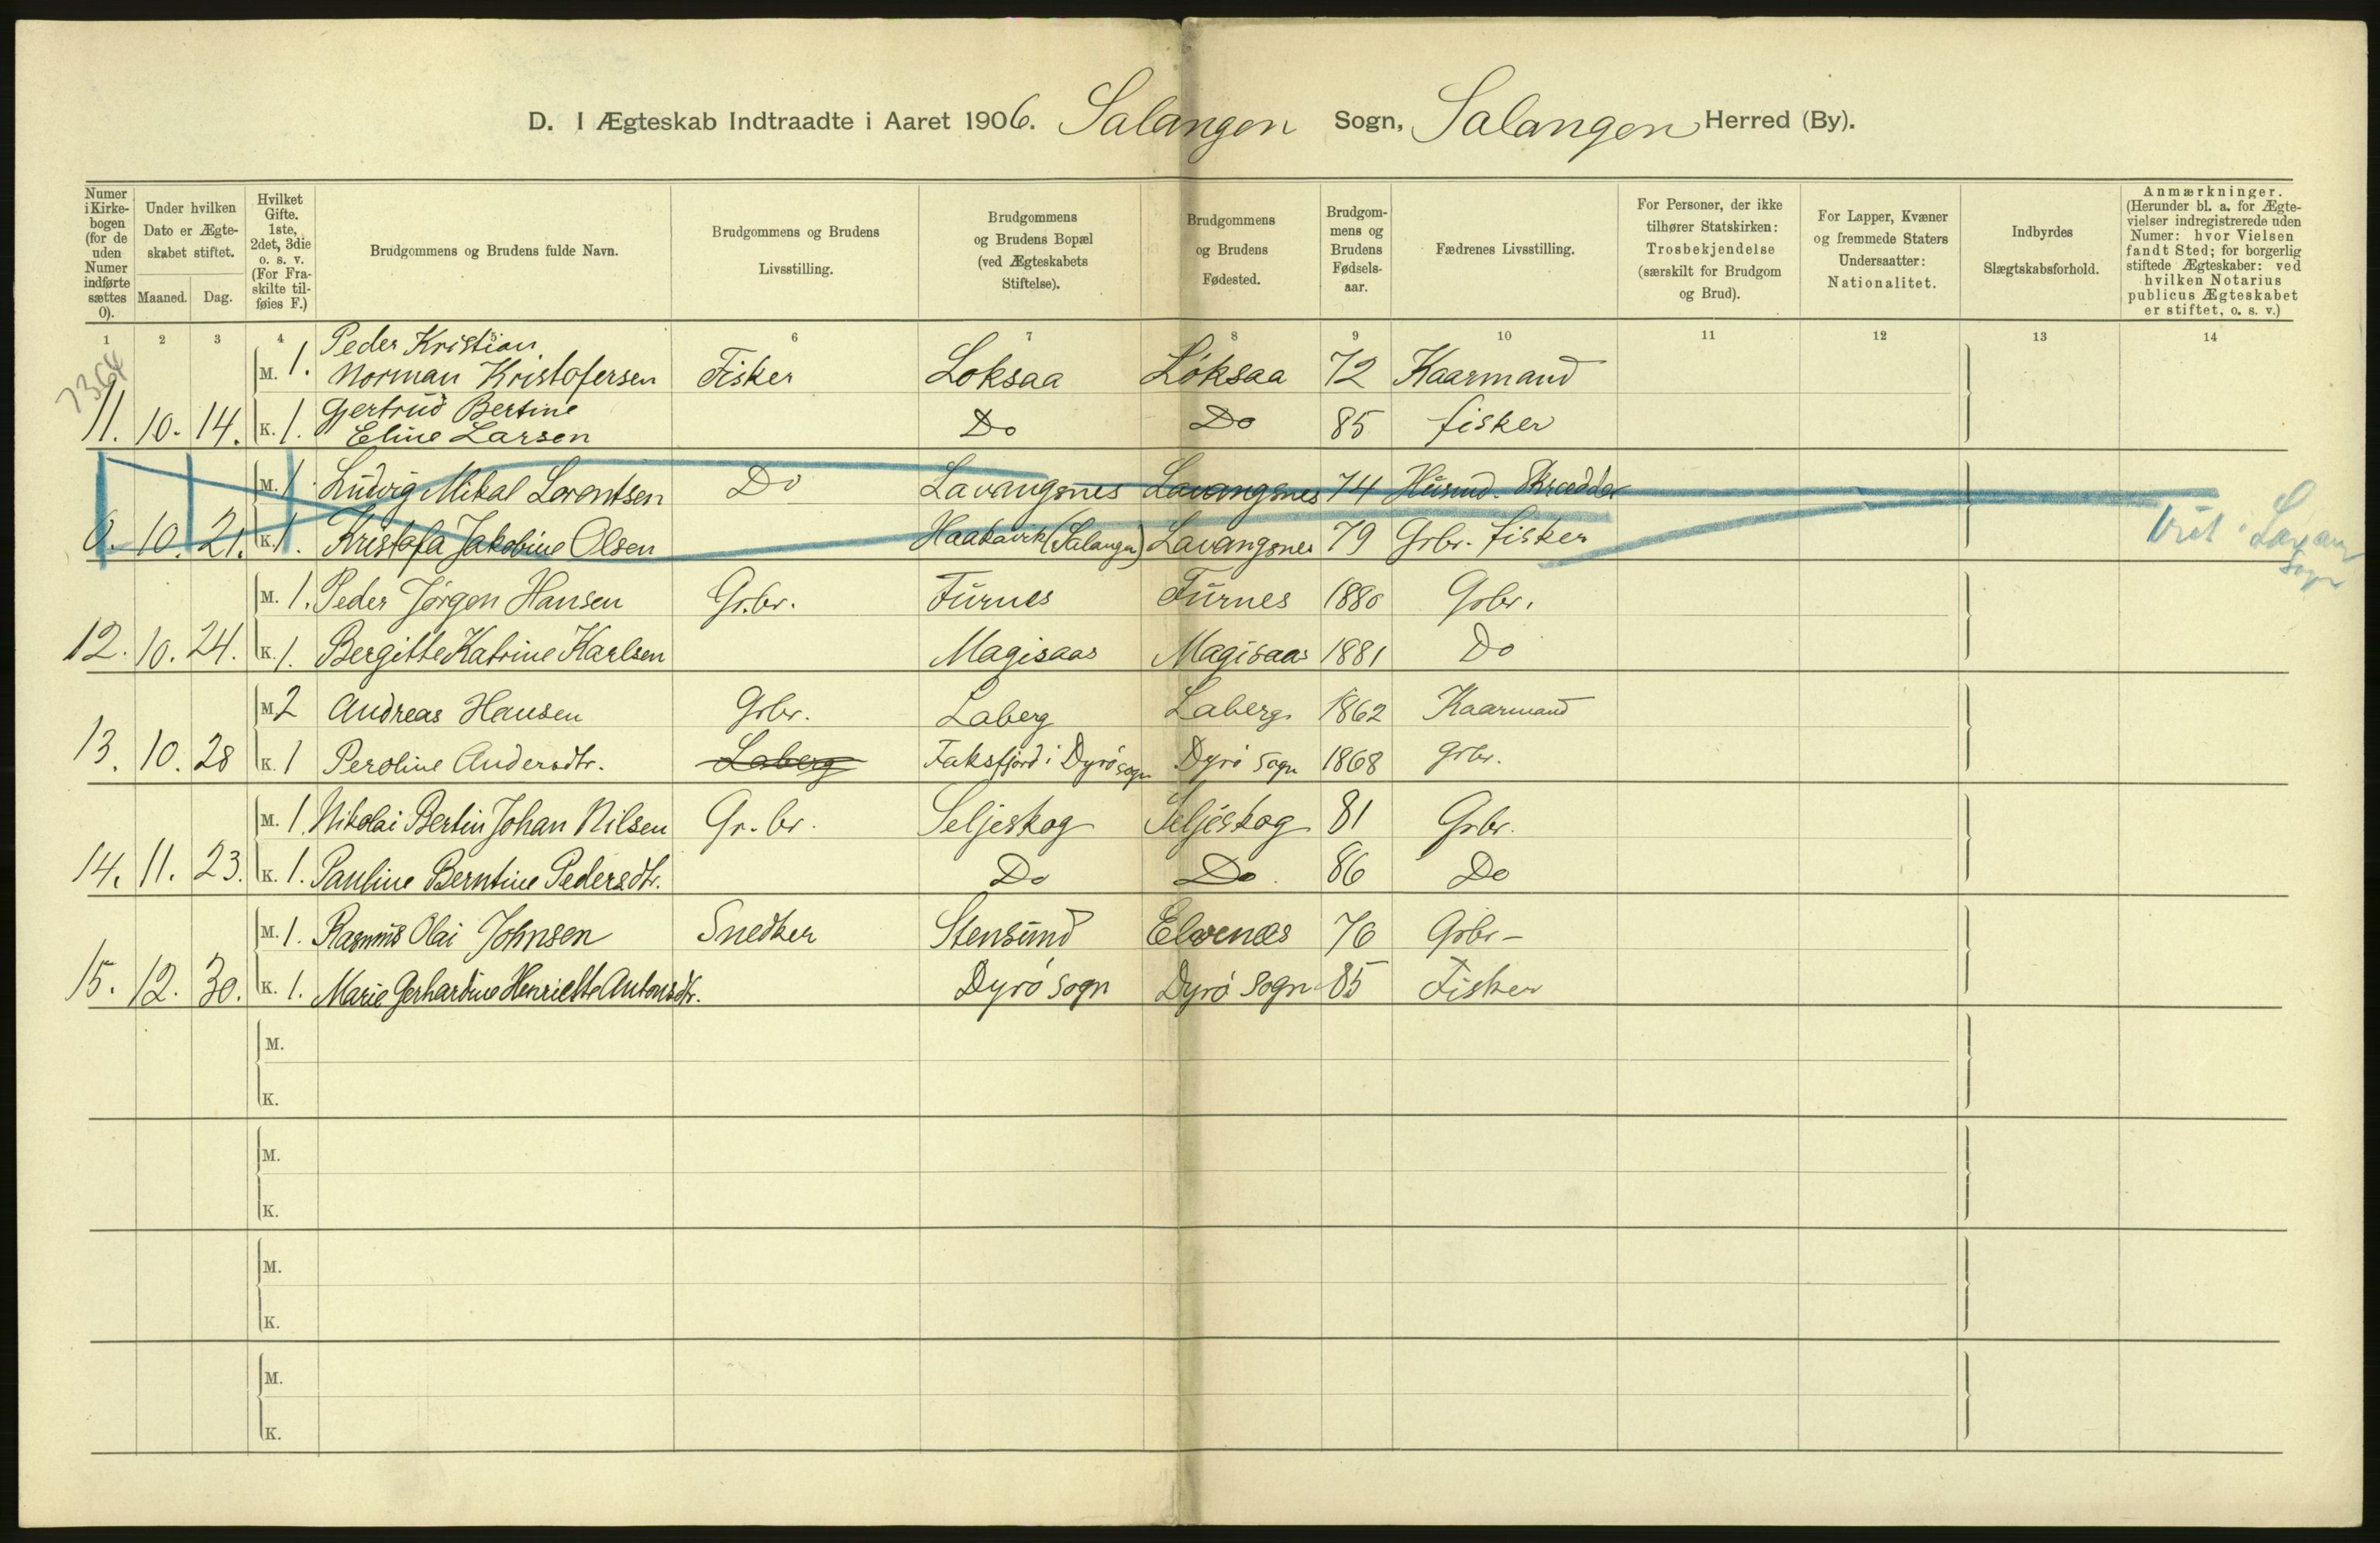 D. I Ægteskab Indtraadte i Aaret 1906. Salangen Sogn, Salangen Herred (By).
Numer i Kirke-bogen (for de uden Numer indførte sættes 0).
Under hvilken Dato er Ægte-skabet stiftet.
Maaned. Dag.
Hvilket Gifte. 1ste, 2det, 3die o. s. v. (For Fra-skilte til-føies F.)
Brudgommens og Brudens fulde Navn.
Brudgommens og Brudens Livsstilling.
Brudgommens og Brudens Bopæl (ved Ægteskabets Stiftelse).
Brudgommens og Brudens Fødested.
Brudgom-mens og Brudens Fødsels-aar.
Fædrenes Livsstilling.
For Personer, der ikke tilhører Statskirken: Trosbekjendelse (særskilt for Brudgom og Brud).
For Lapper, Kvæner og fremmede Staters Undersaatter: Nationalitet.
Indbyrdes Slægtskabsforhold.
Anmærkninger. (Herunder bl. a. for Ægte-vielser indregistrerede uden Numer: hvor Vielsen fandt Sted; for borgerlig stiftede Ægteskaber: ved hvilken Notarius publicus Ægteskabet er stiftet, o. s. v.)
1 2 3 4 5 6 7 8 9 10 11 12 13 14
7364
Peder Kristian
M. 1. Norman Kristofersen Fisker Loksaa Løksaa 72 Kaarmand
Gjertrud Bertine
11. 10. 14. K. 1. Eline Larsen Do Do 85 fisker
M. 1. Ludvig Mikal Lorentsen Do Lavangsnes Lavangsnes 74 Husmd. Skrædder
0. 10. 21. K. 1. Kristofa Jakobine Olsen Haakavik (Salangen) Lavangsnes 79 Grbr. fisker
Lavang
Sogn
M. 1. Peder Jørgen Hansen Gr.br. Furnes Furnes 1880 Grbr.
12. 10. 24. K. 1. Bergitte Katrine Karlsen Magisaas Magisaas 1881 Do
M. 2 Andreas Hansen Grbr. Laberg Laberg 1862 Kaarmand
13. 10. 28 K. 1 Peroline Andersdtr. Laberg Faksfjord i Dyrø sogn Dyrø sogn 1868 grbr.
M. 1. Nikolai Bertin Johan Nilsen Gr.br. Seljeskog Seljeskog 81 Grbr.
14. 11. 23. K. 1. Pauline Berntine Pedersdtr. Do Do. 86 Do
M. 1. Rasmus Olai Johnsen Snedker Stensund Elvenæs 76 Grbr -
15. 12. 30. K. 1. Marie Gerhardine Henriette Antonsdtr. Dyrø sogn Dyrø sogn 85 Fisker
M.
K.
M.
K.
M.
K.
M.
K.